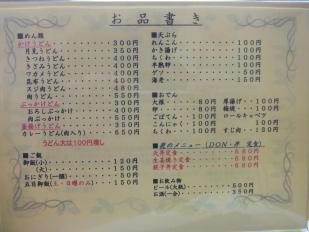 お品書き
■めん類
かけうどん・・・・・・300円
月見うどん・・・・・・350円
きつねうどん・・・・・350円
きざみうどん・・・・・350円
ワカメうどん・・・・・350円
昆布うどん・・・・・・350円
スジ肉うどん・・・・・480円
肉うどん・・・・・・・550円
ぶっかけうどん・・・・350円
おろしぶっかけ・・・・400円
肉ぶっかけ・・・・・・550円
釜揚げうどん・・・・・350円
カレーうどん(肉入り)・・650円
うどん大は100円増し
■ご飯
御飯(小)・・・・・・・120円
(大)・・・・・・・150円
おにぎり(一個)・・・・50円
五目御飯(土・日曜のみ)・・150円
■天ぷら
れんこん・・・・・100円
かき揚げ・・・・・100円
ちくわ・・・・・・100円
半熟卵・・・・・・100円
ゲソ・・・・・・・50円
海老・・・・・・・150円
■おでん
大根・・・80円 厚揚げ・・100円
卵・・・・80円
ごぼてん・・100円 ロールキャベツ
こんにゃく・・100円 ・・・100円
ちくわ・・・100円 すじ肉・・130円
メニュー(DON・丼 定食)
天丼定食・・・・・・680円
生姜焼き定食・・・・680円
親子丼定食・・・・・680円
■お飲み物
ビール(大瓶)・・・・500円
お酒(一合)・・・・・350円